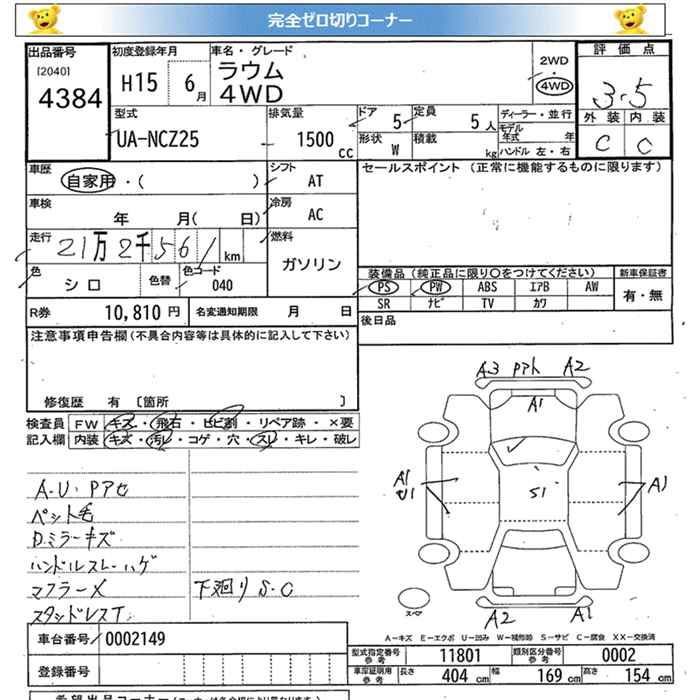 完全ゼロ切りコーナー
出品番号
[2040]
4384
初度登録年月
H15 6月
車名・グレード
ラウム
4WD
2WD
4WD
評価点
3.5
外装 内装
C C
型式
UA-NCZ25
排気量
1500 cc
ドア 5
定員 5人
形状 W
積載 kg
ディーラー・並行
モデル年式 年
ハンドル 左・右
車歴
自家用・( )
シフト
AT
セールスポイント (正常に機能するものに限ります)
車検
年 月( 日)
冷房
AC
走行
21万2千561 km
燃料
ガソリン
色
シロ
色替
色コード
040
装備品 (純正品に限り○をつけてください)
PS PW ABS エアB AW
SR ナビ TV カワ
新車保証書
有・無
R券 10,810 円
名変通知期限 月 日
後日品
注意事項申告欄(不具合内容等は具体的に記入して下さい)
修復歴 有 [箇所 ]
検査員 FW キズ・飛石・ヒビ割・リペア跡・×要
記入欄 内装 キズ・汚レ・コゲ・穴・スレ・キレ・破レ
A3 Pアト A2
A1
A1
U1
S1
A1
A2 A1
スペア
A・U・Pアセ
ペット毛
D.ミラーキズ
ハンドルスレ・ハゲ
マフラーX
下廻りS・C
スタッドレスT
A-キズ E-エクボ U-凹み W-補修跡 S-サビ C-腐食 XX-交換済
車台番号 0002149
登録番号
型式指定番号 参考 11801
類別区分番号 参考 0002
車庫証明用 参考 長さ 404 cm 幅 169 cm 高さ 154 cm